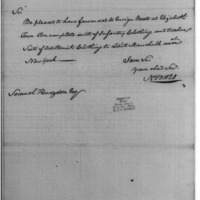 Sir
Be pleased to have forwarded to Ensign Meeks at Elizabeth
Town One complete suits of Infantry Clothing and twelve
Suits of Artillerists Clothing to Lieut Marshall near
New York —
I am Sir
Your obed Serv
Samuel Hodgdon Esqr